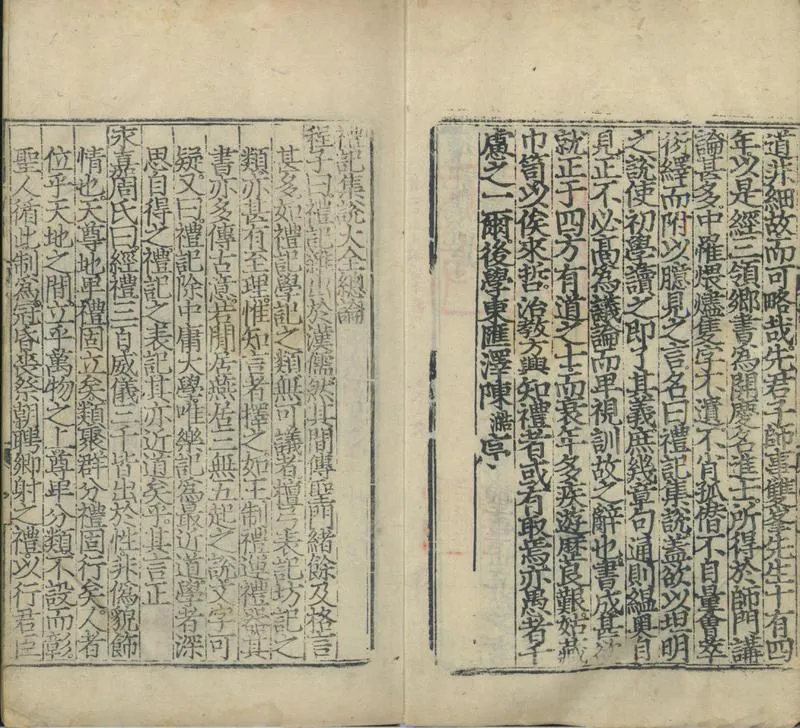 道非細故而可略哉先君子師事雙峯先生十有四
年以是經三領鄉書為開慶名進士所得於師門講
論甚多中罹煨燼隻字不遺不肖孤僣不自量會萃
衍繹而附以臆見之言名曰禮記集說蓋欲以坦明
之說使初學讀之即了其義庶幾章句通則緼奧自
見正不必髙為議論而卑視訓故之辭也書成甚欲
就正于四方有道之士而衰年多疾遊歷良艱姑藏
巾笥以俟來哲治教方興知禮者或有取焉亦愚者千
慮之一爾後學東匯澤陳澔序
禮記集說大全緫論
程子曰禮記雜出於漢儒然其間傳聖門緒餘及格言
甚多如禮記學記之類無可議者檀弓表記坊記之
類亦甚有至理惟知言者擇之如王制禮運禮器其
書亦多傳古意若閒居燕居三無五起之說文字可
疑又曰禮記除中庸大學唯樂記為最近道學者深
思自得之禮記之表記其亦近道矣乎其言正
永嘉周氏曰經禮三百威儀三千皆出於性非偽貌飾
情也天尊地卑禮固立矣類聚群分禮固行矣人者
位乎天地之間立乎萬物之上尊卑分類不設而彰
聖人循此制為冠昏喪祭朝聘鄉射之禮以行君臣